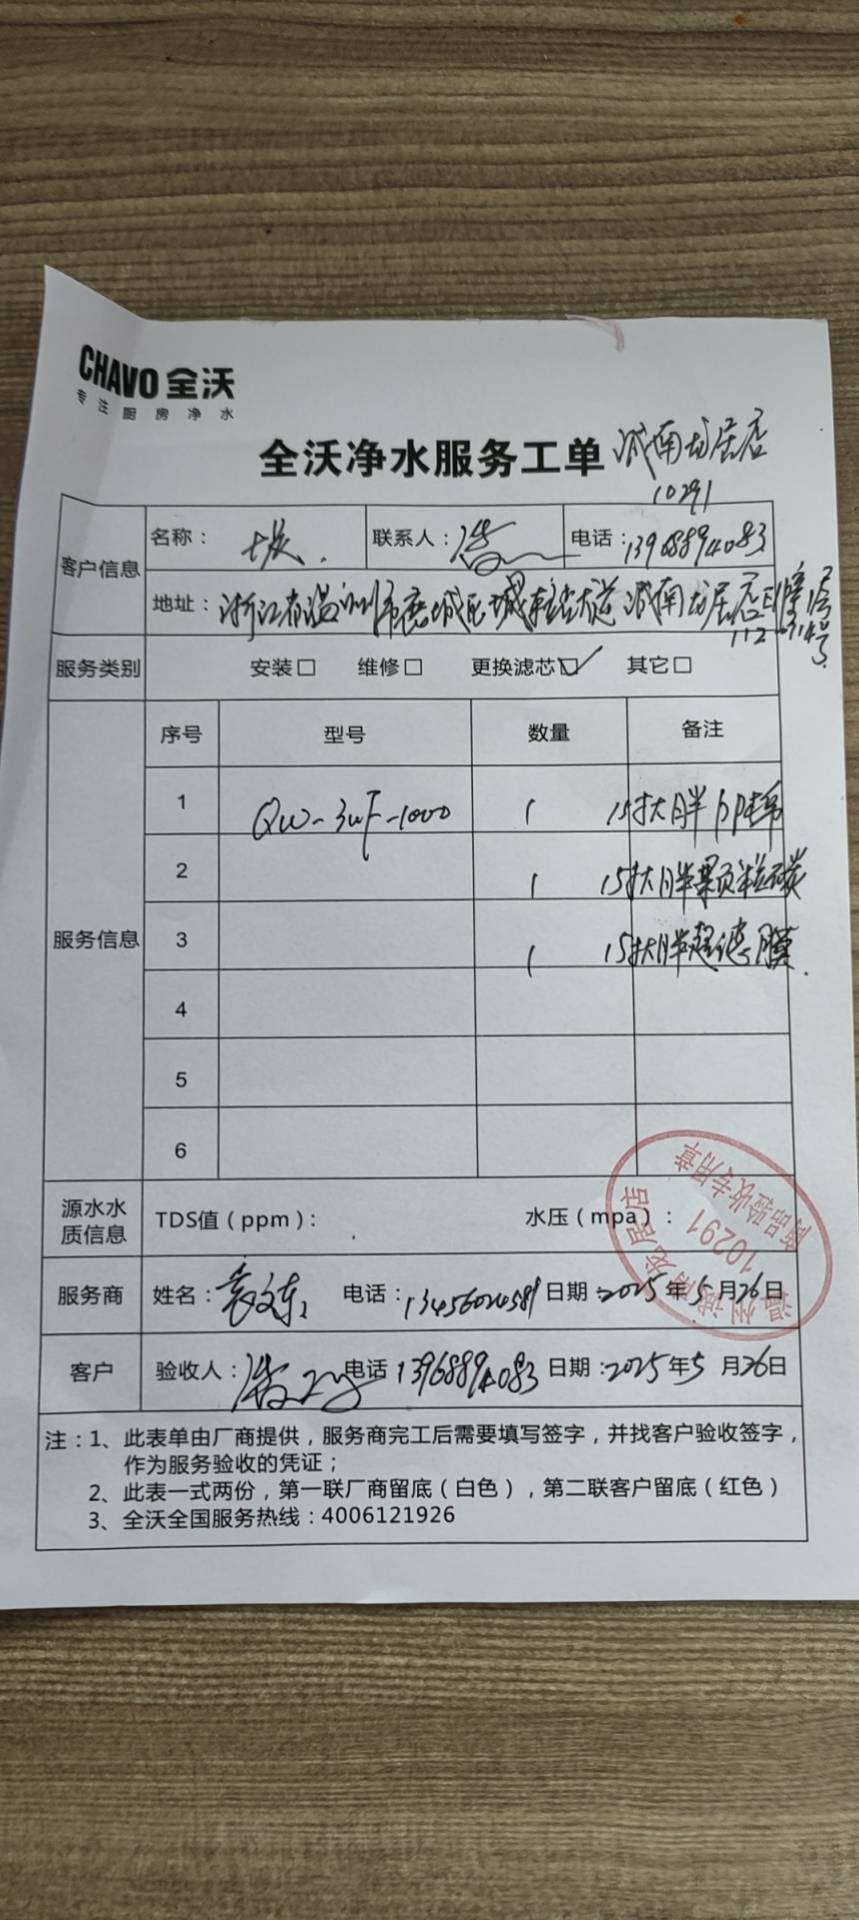 CHAVO 全沃
专注厨房净水
全沃净水服务工单 城南龙居店
10291
客户信息 名称： 联系人： 电话：13968894083
地址：浙江省温州市鹿城区城南 大道 城南龙居店
服务类别 安装□ 维修□ 更换滤芯☑ 其它□
服务信息 序号 型号 数量 备注
1 QW-3WF-1000 1 15寸大胖PP棉
2 1 15寸大胖颗粒碳
3 1 15寸大胖超滤膜
4
5
6
源水水质信息 TDS值（ppm）： 水压（mpa）：
服务商 姓名：袁文东 电话：13456024589 日期：2025年5月26日
客户 验收人： 电话 13968894083 日期：2025年5月26日
注：1、此表单由厂商提供，服务商完工后需要填写签字，并找客户验收签字，
作为服务验收的凭证；
2、此表一式两份，第一联厂商留底（白色），第二联客户留底（红色）
3、全沃全国服务热线：4006121926
温州城南龙居店
10291
商品验收专用章